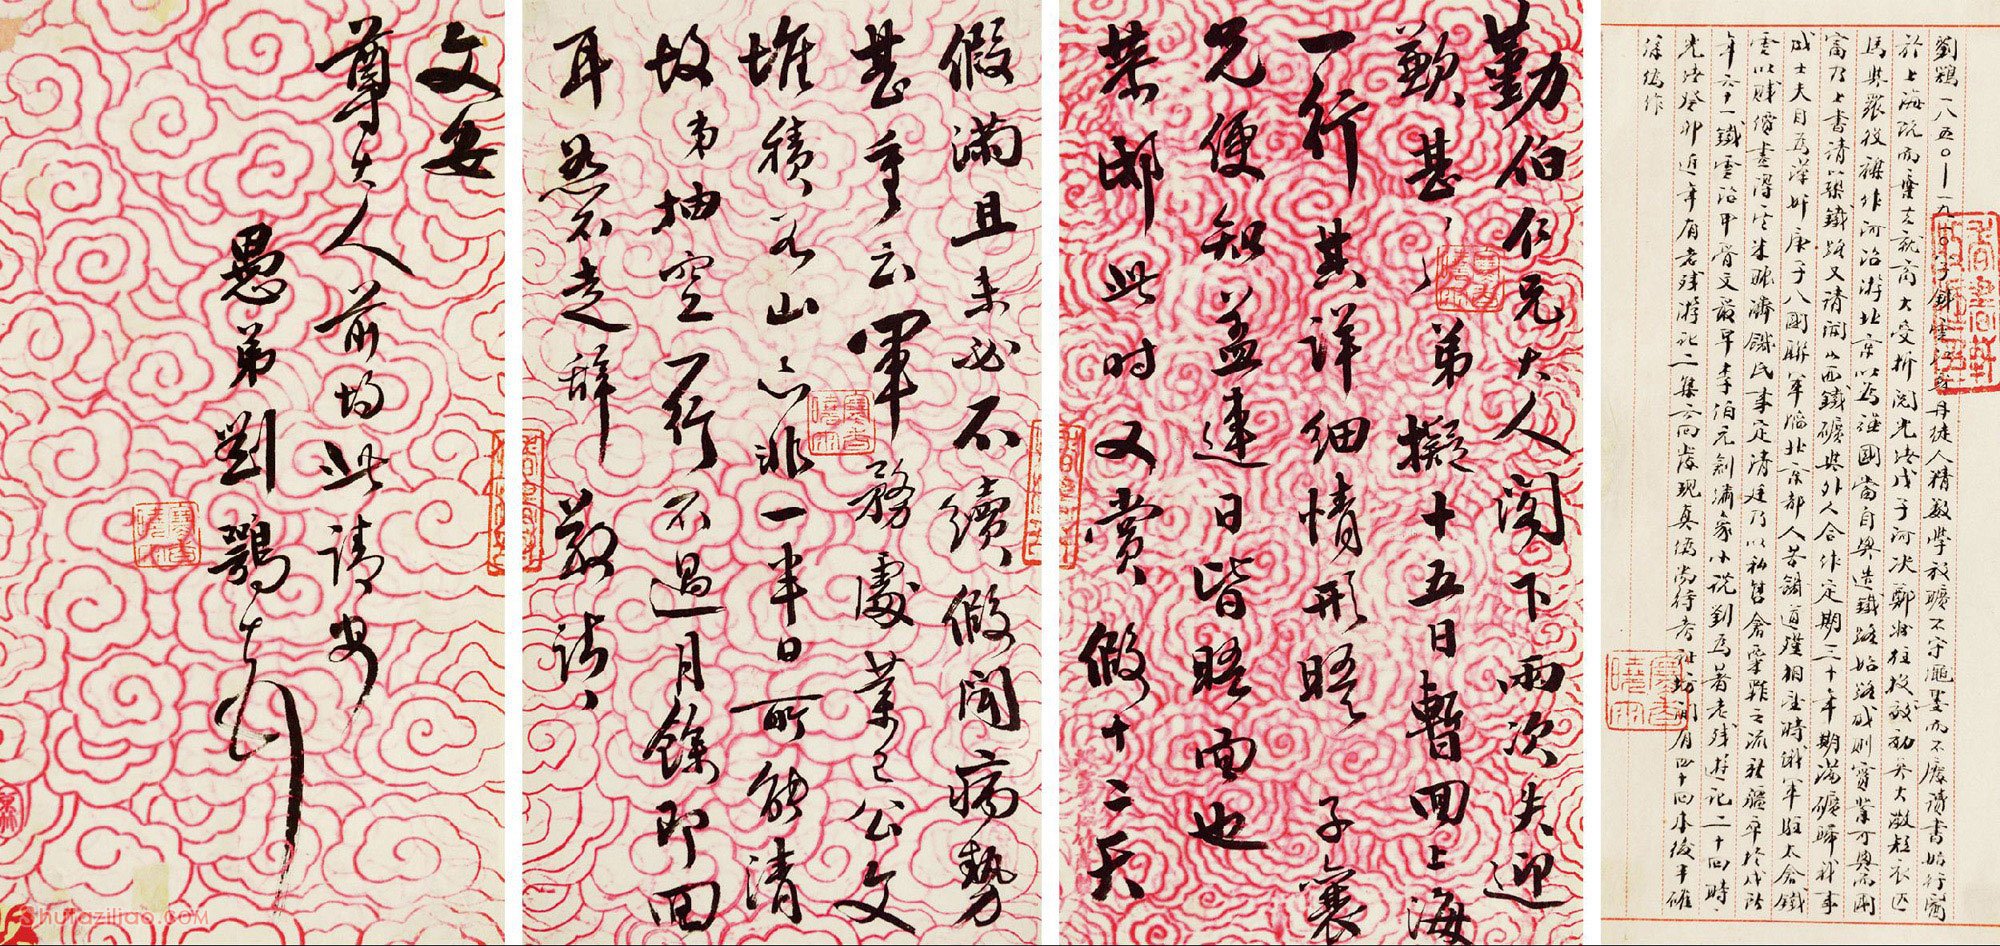 劉鶚一八五〇—一九一〇字鉄雲江蘇丹徒人精數學放曠不守繩墨而不廢讀書始行醫
於上海旣而棄去就商大受折閱光緒戊子河决鄭州往投效初吳大澂短衣匹
馬與衆役襍作河治游北京以爲強國當自興造鐵路始路成則實業可興而國
富乃上書請築鐵路又請開山西鐵礦與外人合作定期三十年期滿礦歸我事
成士夫目爲漢奸庚子八國聯軍臨北京都人苦饑道殣相望時俄軍駐太倉鐵
雲以賤價盡得其米賑濟饑民事定清廷乃以私售倉粟罪之流新疆卒於戍所
年六十一鐵雲治甲骨文最早李伯元創小說劉爲著老殘遊記二十四時
光緒癸卯近年有老殘游記二集云向發現真僞尚待考證坊間有四十回本後半確
係僞作
勤伯仁兄大人閣下兩次失迎
歉甚〻弟擬十五日暫回上海
一行其詳細情形晤子襄
兄便知盖連日皆晤面也
榮邸此時又賞假十二天
假滿且未必不續假聞病勢
甚重云軍務處業已公文
堆積如山亦非一半日所能清
故弟抽空一行不過月餘即回
耳恕不走辭敬請〻
文安
尊大人前均此請安
愚弟劉鶚頓首
Shufaziliao.com